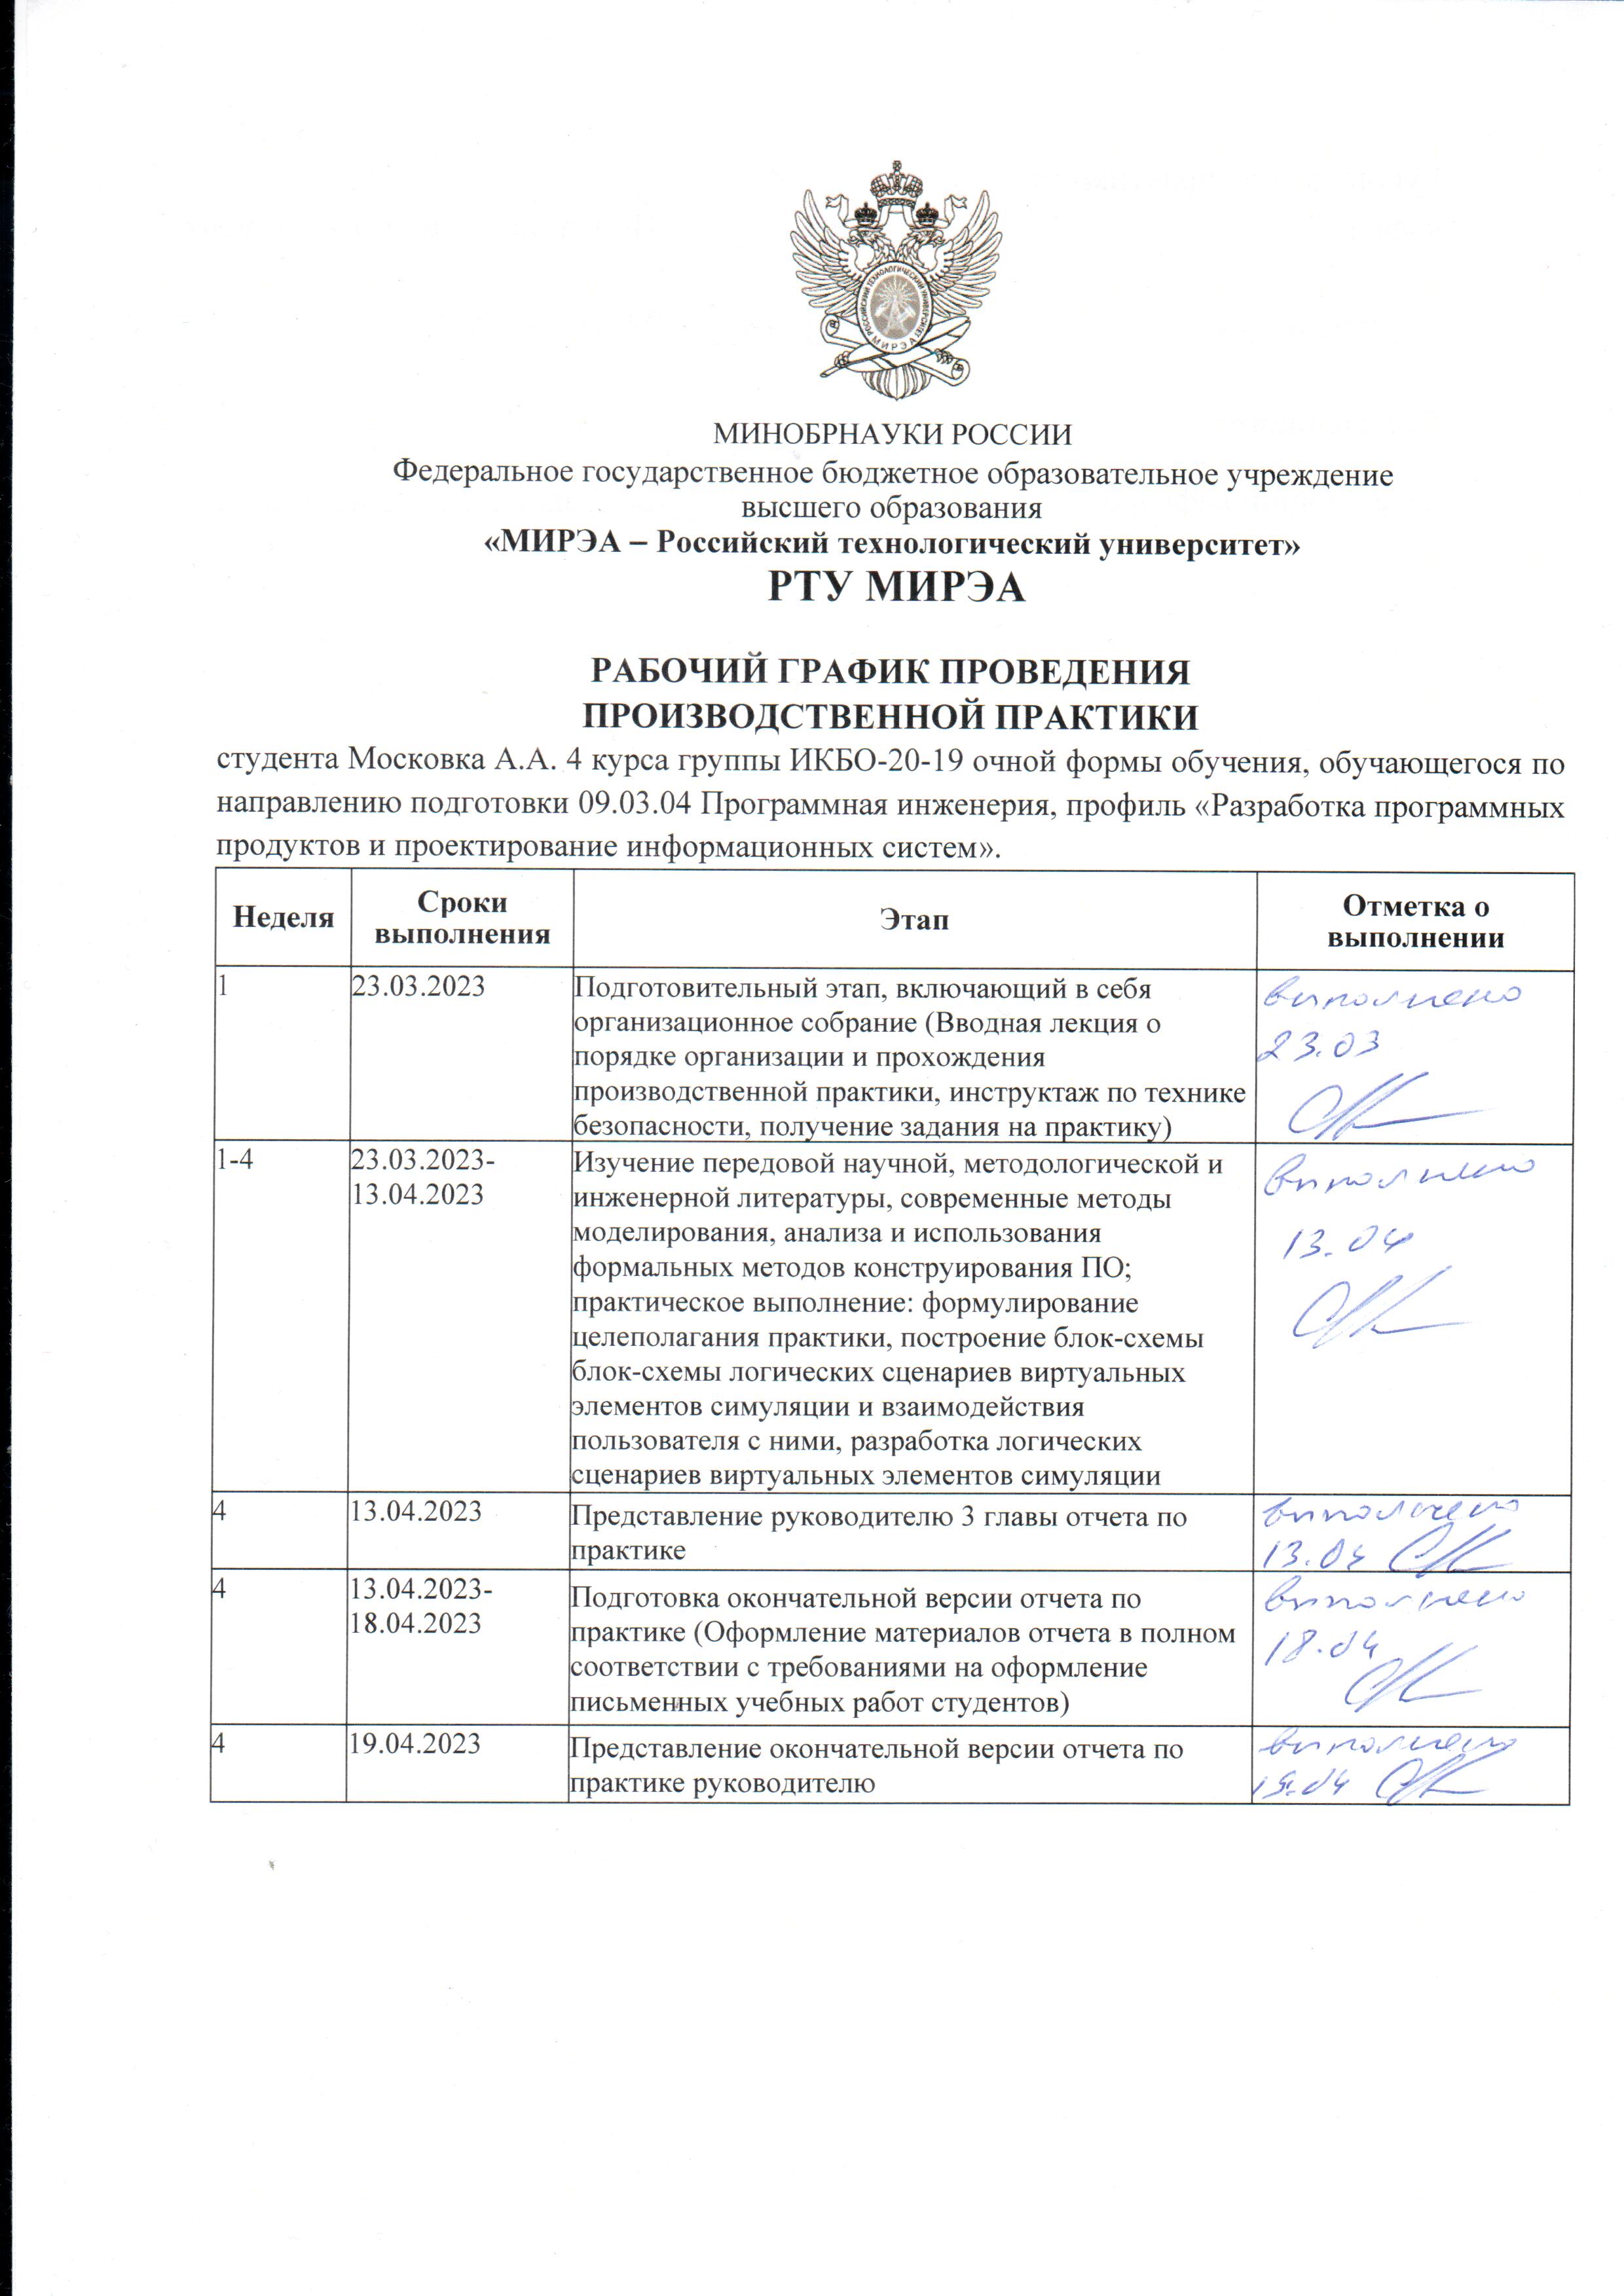 РОССИЙСКИЙ ТЕХНОЛОГИЧЕСКИЙ УНИВЕРСИТЕТ
МИРЭА
МИНОБРНАУКИ РОССИИ
Федеральное государственное бюджетное образовательное учреждение
высшего образования
«МИРЭА – Российский технологический университет»
РТУ МИРЭА
РАБОЧИЙ ГРАФИК ПРОВЕДЕНИЯ
ПРОИЗВОДСТВЕННОЙ ПРАКТИКИ
студента Московка А.А. 4 курса группы ИКБО-20-19 очной формы обучения, обучающегося по
направлению подготовки 09.03.04 Программная инженерия, профиль «Разработка программных
продуктов и проектирование информационных систем».
Неделя
Сроки
выполнения
Этап
Отметка о
выполнении
1
23.03.2023
Подготовительный этап, включающий в себя
организационное собрание (Вводная лекция о
порядке организации и прохождения
производственной практики, инструктаж по технике
безопасности, получение задания на практику)
выполнено
23.03
1-4
23.03.2023-
13.04.2023
Изучение передовой научной, методологической и
инженерной литературы, современные методы
моделирования, анализа и использования
формальных методов конструирования ПО;
практическое выполнение: формулирование
целеполагания практики, построение блок-схемы
блок-схемы логических сценариев виртуальных
элементов симуляции и взаимодействия
пользователя с ними, разработка логических
сценариев виртуальных элементов симуляции
выполнено
13.04
4
13.04.2023
Представление руководителю 3 главы отчета по
практике
выполнено
13.04
4
13.04.2023-
18.04.2023
Подготовка окончательной версии отчета по
практике (Оформление материалов отчета в полном
соответствии с требованиями на оформление
письменных учебных работ студентов)
выполнено
18.04
4
19.04.2023
Представление окончательной версии отчета по
практике руководителю
выполнено
19.04